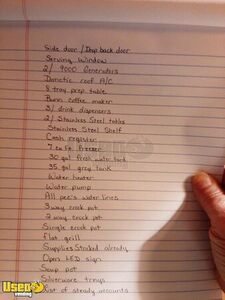 Side door / Drop back door
Serving Window
2/ 9000 Generators
Dometic roof A/C
8 tray prep table
Bunn coffee maker
3/ drink dispensers
2/ Stainless Steel tables
Stainless Steel Shelf
Cash register
7 cu ft. Freezer
30 gal fresh water tank
35 gal grey tank
Water heater
Water pump
All pex water lines
3 way crock pot
2 way crock pot
Single crock pot
Flat grill
Supplies Stocked already
Open LED sign
Soup pot
Silverware trays
List of steady accounts